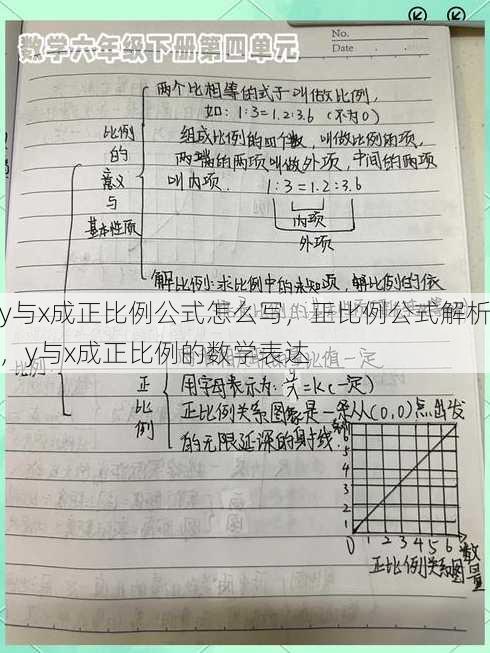 数学六年级下册第四单元
No.
Date
两个比相等的式子叫做比例,
如: 1:3=1.2:3.6 (不为0)
比例的意义与基本性质
组成比例的四个数,叫做比例的项,
两端的两项叫做外项,中间的两项
叫内项. 1:3=1.2:3.6
内项
外项
解比例:求比例中的未知项,解比例的依
y与x成正比例公式怎么写,正比例公式解析
,y与x成正比例的数学表达
比值一定
正比例
用字母表示为: =k(一定)
正比例关系图象是一条从(0,0)点出发
的无限延深的射线.
6
5
4
3
2
1
0 1 2 3 4 5 6 数量
正比例关系图